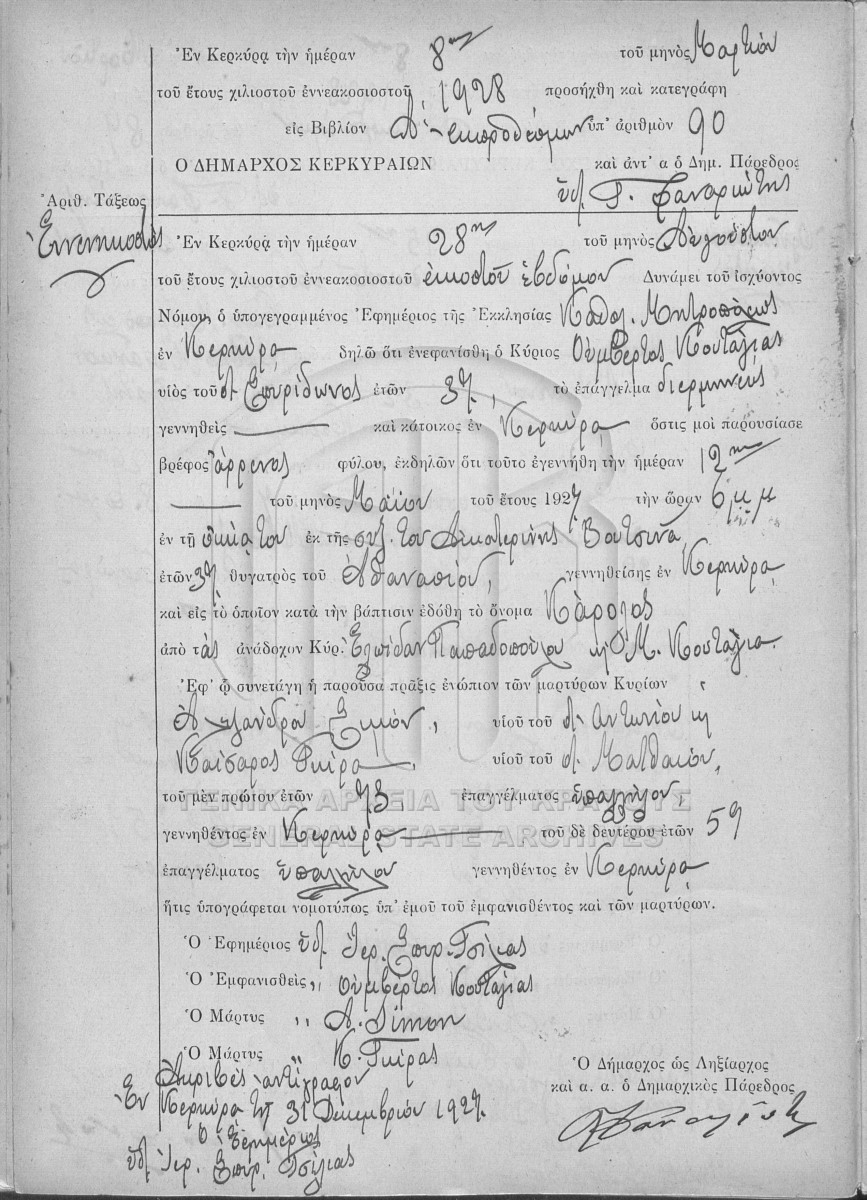 Ἐν Κερκύρᾳ τὴν ἡμέραν 8ην τοῦ μηνὸς Μαρτίου
τοῦ ἔτους χιλιοστοῦ ἐννεακοσιοστοῦ, 1928 προσήχθη καὶ κατεγράφη
εἰς Βιβλίον Α ἐκπροθέσμων ὑπ' ἀριθμὸν 90
Ο ΔΗΜΑΡΧΟΣ ΚΕΡΚΥΡΑΙΩΝ καὶ ἀντ' α ὁ Δημ. Πάρεδρος
Ἀριθ. Τάξεως
Ἐννενηκοστὸς
Ἐν Κερκύρᾳ τὴν ἡμέραν 28ην τοῦ μηνὸς Αὐγούστου
τοῦ ἔτους χιλιοστοῦ ἐννεακοσιοστοῦ εἰκοστοῦ ἑβδόμου Δυνάμει τοῦ ἰσχύοντος
Νόμου, ὁ ὑπογεγραμμένος Ἐφημέριος τῆς Ἐκκλησίας Καθολ. Μητροπόλεως
ἐν Κερκύρᾳ δηλῶ ὅτι ἐνεφανίσθη ὁ Κύριος Οὐμβέρτος Κουτάγιας
υἱὸς τοῦ Σπυρίδωνος ἐτῶν 37, τὸ ἐπάγγελμα διερμηνεὺς
γεννηθεὶς — καὶ κάτοικος ἐν Κερκύρᾳ ὅστις μοὶ παρουσίασε
βρέφος ἄρρενος φύλου, ἐκδηλῶν ὅτι τοῦτο ἐγεννήθη τὴν ἡμέραν 12ην
— τοῦ μηνὸς Μαΐου τοῦ ἔτους 1927 τὴν ὥραν 6 μ μ
ἐν τῇ οἰκίᾳ του ἐκ τῆς συζ. του Αἰκατερίνης Βουτσινᾶ,
ἐτῶν 37 θυγατρὸς τοῦ Ἀθανασίου, γεννηθείσης ἐν Κερκύρᾳ
καὶ εἰς τὸ ὁποῖον κατὰ τὴν βάπτισιν ἐδόθη τὸ ὄνομα Κάρολος
ἀπὸ τὰς ἀνάδοχον Κύρ. Ἐλπίδαν Παπαδοπούλου κ Μ. Κουτάγια.
Ἐφ' ᾧ συνετάγη ἡ παροῦσα πρᾶξις ἐνώπιον τῶν μαρτύρων Κυρίων
Ἀλεξάνδρου Σιμόν, υἱοῦ τοῦ Ἀντωνίου κ
Καίσαρος Γκίρα —, υἱοῦ τοῦ Ματθαίου,
τοῦ μὲν πρώτου ἐτῶν 73 ἐπαγγέλματος ὑπαλλήλου,
ΓΕΝΙΚΑ ΑΡΧΕΙΑ ΤΟΥ ΚΡΑΤΟΥΣ
GENERAL STATE ARCHIVES
γεννηθέντος ἐν Κερκύρᾳ — τοῦ δὲ δευτέρου ἐτῶν 59
ἐπαγγέλματος ὑπαλλήλου γεννηθέντος ἐν Κερκύρᾳ
ἥτις ὑπογράφεται νομοτύπως ὑπ' ἐμοῦ τοῦ ἐμφανισθέντος καὶ τῶν μαρτύρων.
Ὁ Ἐφημέριος Ἱερ. Σπυρ. Τσίλιας
Ὁ Ἐμφανισθεὶς ,, Οὐμβέρτος Κουτάγιας
Ὁ Μάρτυς ,, A. Simon
Ὁ Μάρτυς Κ. Γκίρας
Ὁ Δήμαρχος ὡς Ληξίαρχος
καὶ α. α. ὁ Δημαρχικὸς Πάρεδρος
Ἀκριβὲς ἀντίγραφον
Ἐν Κερκύρᾳ τῇ 31 Δεκεμβρίου 1927.
Ὁ Ἐφημέριος
Ἱερ. Σπυρ. Τσίλιας